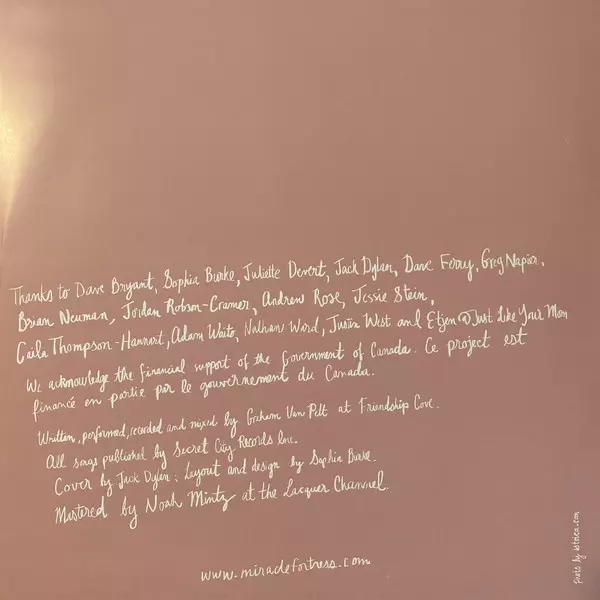 Thanks to Dave Bryant, Sophia Burke, Juliette Devert, Jack Dylan, Dave Ferry, Greg Napier,
Brian Neuman, Jordan Robson-Cramer, Andrew Rose, Jessie Stein,
Caila Thompson-Hannant, Adam Waito, Nathan Ward, Justin West and Etjen @ Just Like Your Mom
We acknowledge the financial support of the Government of Canada. Ce project est
financé en partie par le gouvernement du Canada.
Written, performed, recorded and mixed by Graham Van Pelt at Friendship Cove.
All songs published by Secret City Records Inc.
Cover by Jack Dylan; Layout and design by Sophia Burke.
Mastered by Noah Mintz at the Lacquer Channel.
www.miraclefortress.com
Photo by